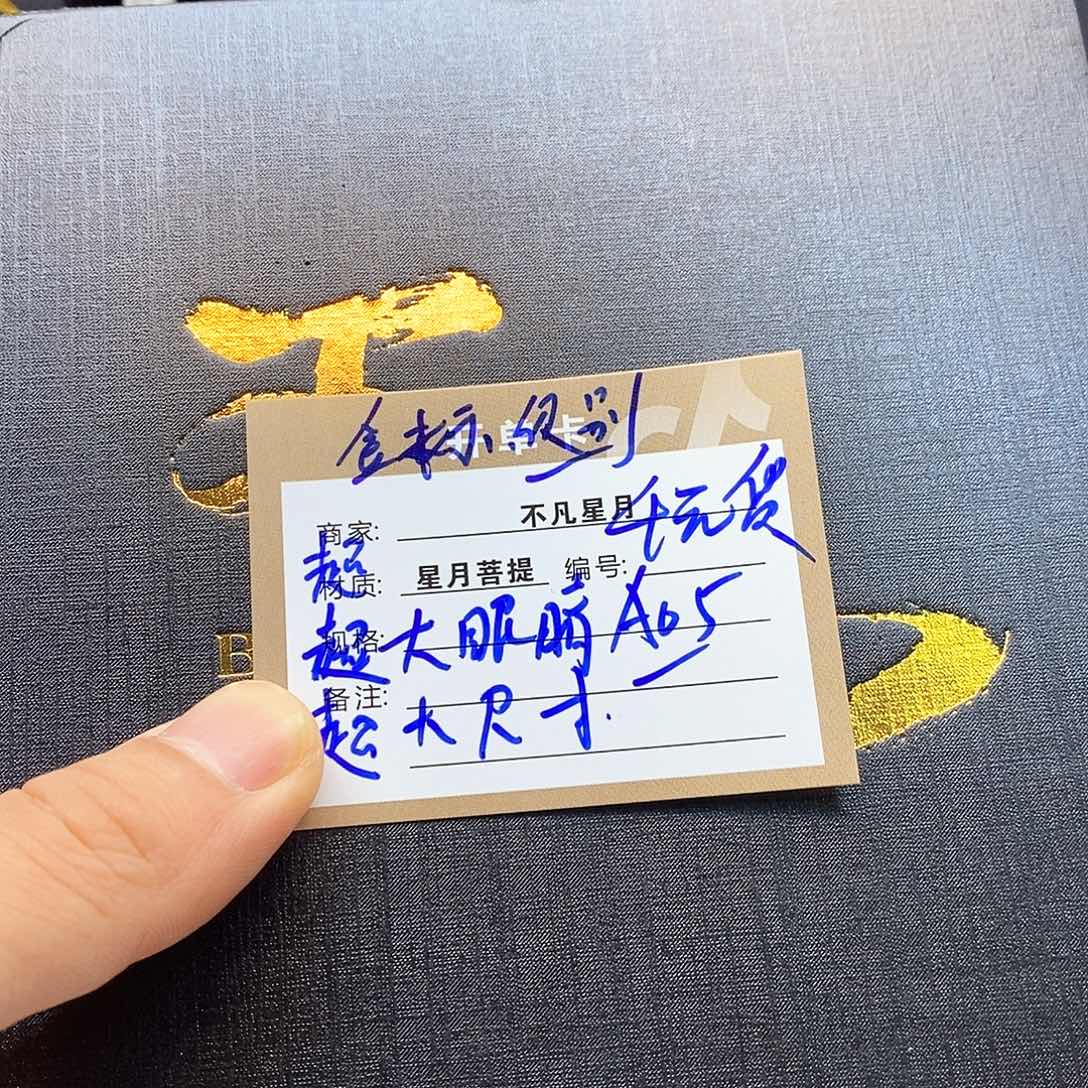 金标级别
开单卡
商家: 不凡星月
千元货
超
材质: 星月菩提 编号:
规格:
超大眼睛 A65
备注:
超大尺寸.
B